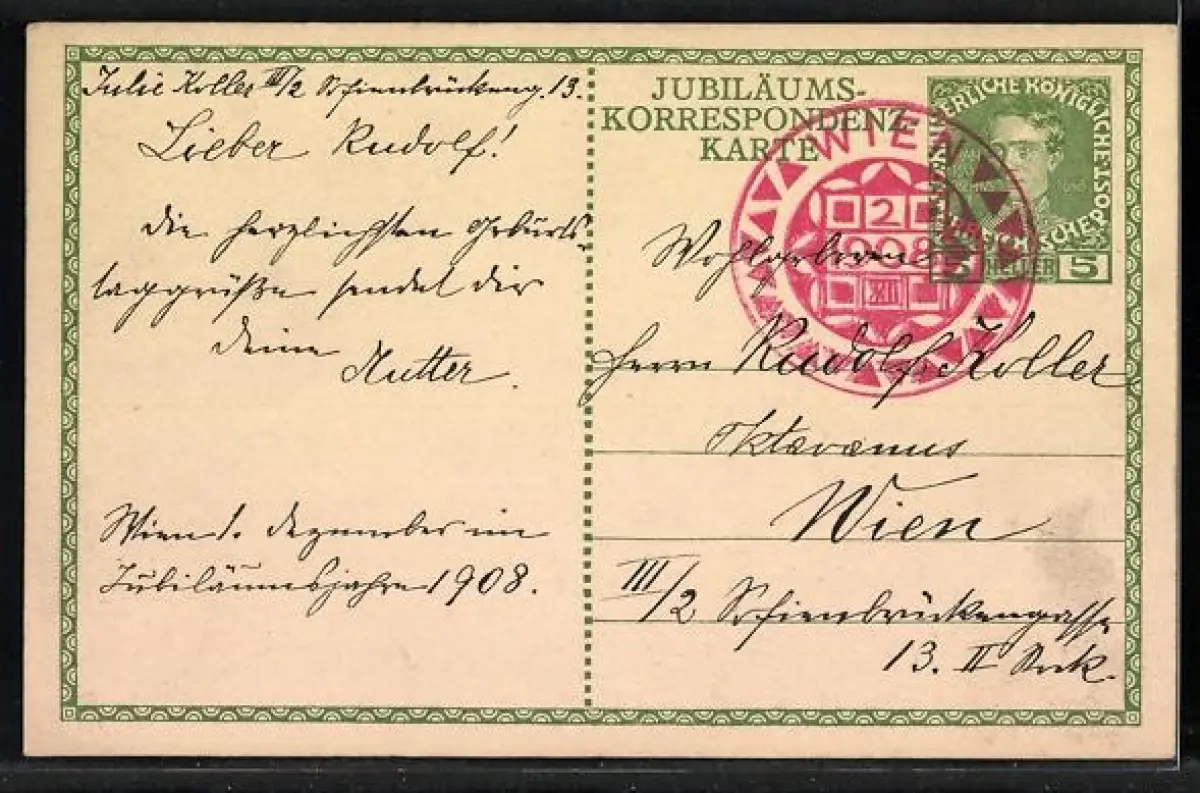 Julie Koller III/2 Sofienbrückeng. 13.
Lieber Rudolf!
die herzlichsten Geburts-
taggrüße sendet dir
deine
Mutter.
Wien 1. Dezember im
Jubiläumsjahre 1908.
JUBILÄUMS-
KORRESPONDENZ-
KARTE
WIEN
2
1908
XII
5 HELLER 5
Wohlgeboren
Herrn Rudolf Koller
Oktavanus
Wien
III/2 Sofienbrückengasse
13. II Stck.